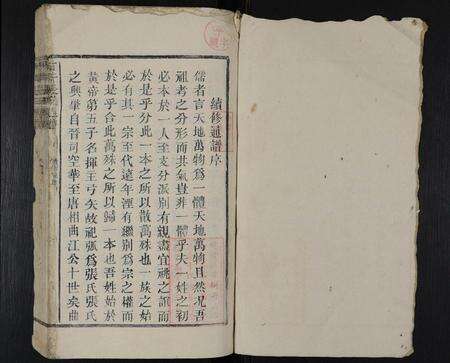 續修通譜序
儒者言天地萬物爲一體天地萬物且然况吾
祖考之分形而共氣豈非一體乎夫一姓之初
必本於一人至支分派別有親盡宜祧之詔而
於是乎分此一本之所以散萬殊也一族之始
必有其一宗至代遠年湮有繼別爲宗之權而
於是乎合此萬殊之所以歸一本也吾姓始於
黃帝第五子名揮王弓矢故祀張爲張氏張氏
之興肇自晉司空華至唐相曲江公十世矣曲